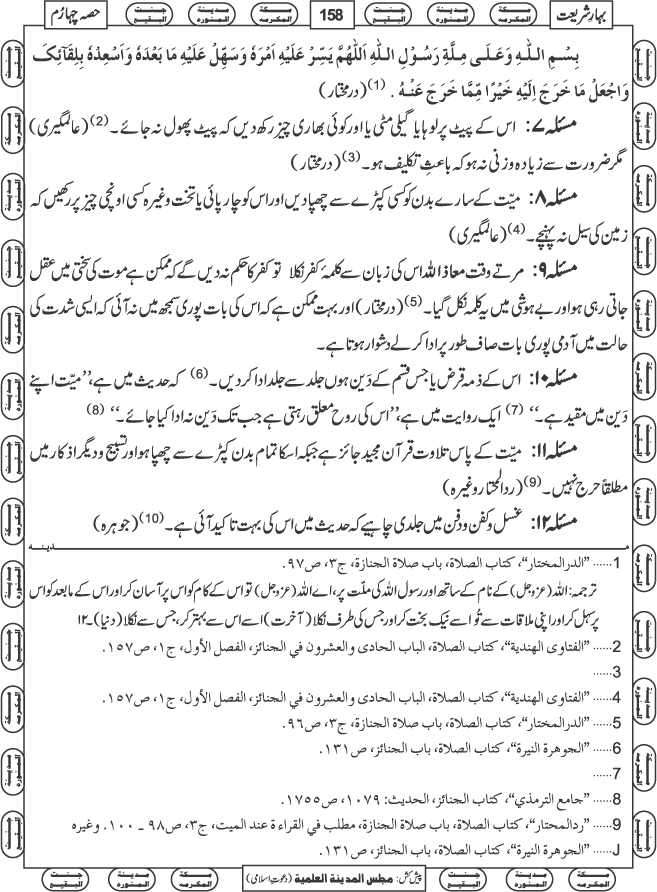 بہارِ شریعت
158
حصہ چہارم
بِسْمِ اللّٰهِ وَعَلٰى مِلَّةِ رَسُوْلِ اللّٰهِ اَللّٰهُمَّ يَسِّرْ عَلَيْهِ اَمْرَهٗ وَسَهِّلْ عَلَيْهِ مَا بَعْدَهٗ وَاَسْعِدْهُ بِلِقَائِكَ
وَاجْعَلْ مَا خَرَجَ اِلَيْهِ خَيْرًا مِّمَّا خَرَجَ عَنْهُ . (1) (درمختار)
مسئلہ ۷: اس کے پیٹ پر لوہا یا گیلی مٹی یا اور کوئی بھاری چیز رکھ دیں کہ پیٹ پھول نہ جائے۔ (2) (عالمگیری)
مگر ضرورت سے زیادہ وزنی نہ ہو کہ باعثِ تکلیف ہو۔ (3) (درمختار)
مسئلہ ۸: میّت کے سارے بدن کو کسی کپڑے سے چھپا دیں اور اس کو چارپائی یا تخت وغیرہ کسی اونچی چیز پر رکھیں کہ
زمین کی سیل نہ پہنچے۔ (4) (عالمگیری)
مسئلہ ۹: مرتے وقت معاذ اللہ اس کی زبان سے کلمۂ کفر نکلا تو کفر کا حکم نہ دیں گے کہ ممکن ہے موت کی سختی میں عقل
جاتی رہی ہو اور بے ہوشی میں یہ کلمہ نکل گیا۔ (5) (درمختار) اور بہت ممکن ہے کہ اس کی بات پوری سمجھ میں نہ آئی کہ ایسی شدت کی
حالت میں آدمی پوری بات صاف طور پر ادا کر لے دشوار ہوتا ہے۔
مسئلہ ۱۰: اس کے ذمہ قرض یا جس قسم کے دَین ہوں جلد سے جلد ادا کر دیں۔ (6) کہ حدیث میں ہے، ”میّت اپنے
دَین میں مقید ہے۔“ (7) ایک روایت میں ہے، ”اس کی روح معلق رہتی ہے جب تک دَین نہ ادا کیا جائے۔“ (8)
مسئلہ ۱۱: میّت کے پاس تلاوت قرآن مجید جائز ہے جبکہ اسکا تمام بدن کپڑے سے چھپا ہو اور تسبیح و دیگر اذکار میں
مطلقاً حرج نہیں۔ (9) (ردالمحتار وغیرہ)
مسئلہ ۱۲: غسل و کفن و دفن میں جلدی چاہیے کہ حدیث میں اس کی بہت تاکید آئی ہے۔ (10) (جوہرہ)
1...... ”الدرالمختار“، کتاب الصلاة، باب صلاة الجنازة، ج۳، ص۹۷.
ترجمہ: اللہ (عزوجل) کے نام کے ساتھ اور رسول اللہ کی ملّت پر، اے اللہ (عزوجل) تو اس کے کام کو اس پر آسان کر اور اس کے مابعد کو اس
پر سہل کر اور اپنی ملاقات سے تُو اسے نیک بخت کر اور جس کی طرف نکلا (آخرت) اسے اس سے بہتر کر، جس سے نکلا (دنیا)۔ ۱۲
2...... ”الفتاوی الھندیة“، کتاب الصلاة، الباب الحادی والعشرون في الجنائز، الفصل الأول، ج۱، ص۱۵۷.
3......
4...... ”الفتاوی الھندیة“، کتاب الصلاة، الباب الحادی والعشرون في الجنائز، الفصل الأول، ج۱، ص۱۵۷.
5...... ”الدرالمختار“، کتاب الصلاة، باب صلاة الجنازة، ج۳، ص۹۶.
6...... ”الجوھرة النیرة“، کتاب الصلاة، باب الجنائز، ص۱۳۱.
7......
8...... ”جامع الترمذي“، کتاب الجنائز، الحدیث: ۱۰۷۹، ص۱۷۵۵.
9...... ”ردالمحتار“، کتاب الصلاة، باب صلاة الجنازة، مطلب في القراءة عند المیت، ج۳، ص۹۸ ـ ۱۰۰. وغیرہ
J...... ”الجوھرة النیرة“، کتاب الصلاة، باب الجنائز، ص۱۳۱.
پیش کش: مجلس المدینة العلمیة (دعوتِ اسلامی)